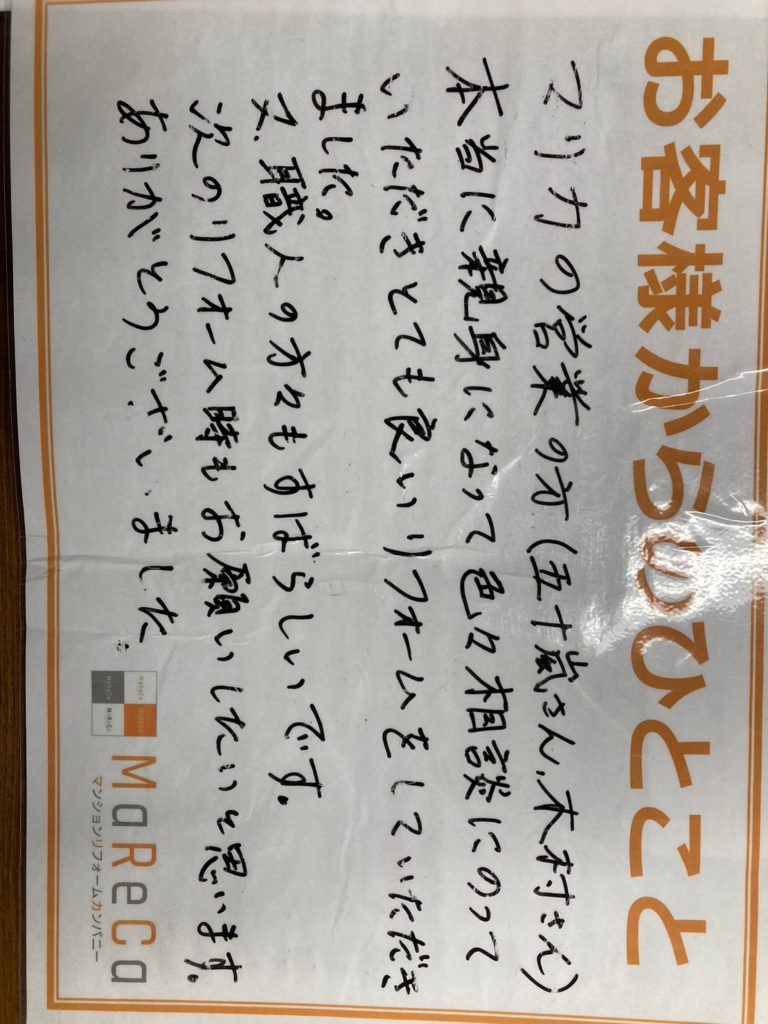 お客様からのひとこと
マリカの営業の方(五十嵐さん、木村さん)
本当に親身になって色々相談にのって
いただきとても良いリフォームをしていただき
ました。
又、職人の方々もすばらしいです。
次のリフォーム時もお願いしたいと思います。
ありがとうございました。
MaReCa
マンションリフォームカンパニー